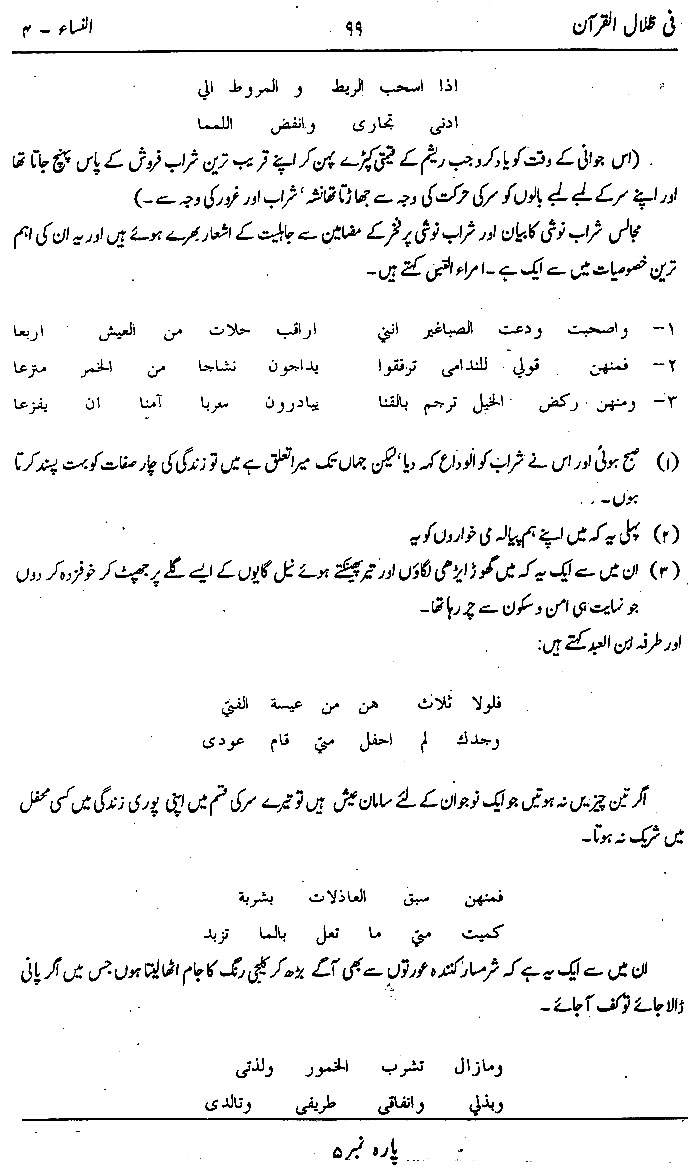 فی ظلال القرآن ۹۹ النساء - ۴
اذا اسحب الربط و المروط الي
ادنى تجارى وانفض اللمما
(اس جوانی کے وقت کو یاد کرو جب ریشم کے قیمتی کپڑے پہن کر اپنے قریب ترین شراب فروش کے پاس پہنچ جاتا تھا
اور اپنے سر کے لمبے لمبے بالوں کو سر کی حرکت کی وجہ سے جھاڑتا تھا نشہ ' شراب اور غرور کی وجہ سے -)
مجالس شراب نوشی کا بیان اور شراب نوشی پر فخر کے مضامین سے جاہلیت کے اشعار بھرے ہوئے ہیں اور یہ ان کی اہم
ترین خصوصیات میں سے ایک ہے - امراء القیس کہتے ہیں -
۱- واصحبت ودعت الصباغير انني اراقب حلات من العيش اربعا
۲- فمنهن قولي للندامى ترفقوا يداجون نشاجا من الخمر مترعا
۳- ومنهن ركض الخيل ترجم بالقنا يبادرون سعربا آمنا ان يفزعا
(۱) صبح ہوئی اور اس نے شراب کو الوداع کہہ دیا' لیکن جہاں تک میرا تعلق ہے میں تو زندگی کی چار صفات کو بہت پسند کرتا
ہوں -
(۲) پہلی یہ کہ میں اپنے ہم پیالہ می خواروں کو یہ
(۳) ان میں سے ایک یہ کہ میں گھوڑ ایڑھی لگاؤں اور تیر پھینکتے ہوئے نیل گایوں کے ایسے گلے پر جھپٹ کر خوفزدہ کر دوں
جو نہایت ہی امن و سکون سے چر رہا تھا -
اور طرفہ ابن العبد کہتے ہیں:
فلولا ثلاث هن من عيسة الفتي
وجدك لم احفل متي قام عودى
اگر تین چیزیں نہ ہوتیں جو ایک نوجوان کے لئے سامان عیش ہیں تو تیرے سر کی قسم میں اپنی پوری زندگی میں کسی محفل
میں شریک نہ ہوتا -
فمنهن سبق العاذلات بشربة
كميت متي ما تعل بالما تزبد
ان میں سے ایک یہ ہے کہ شرمسار کنندہ عورتوں سے بھی آگے بڑھ کر کلیجی رنگ کا جام اٹھا لیتا ہوں جس میں اگر پانی
ڈالا جائے تو کف آجائے -
ومازال تشرب الخمور ولذتى
وبذلي وانفاقى طريفى وتالدى
پارہ نمبر ۵